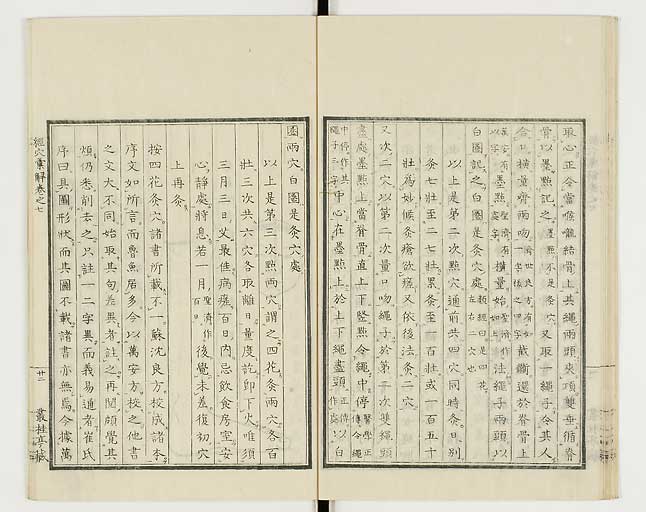 取心正令當喉嚨結骨上其繩兩頭夾項雙垂循脊
骨以墨點記之墨點不是灸穴又取一繩子令其人
合口橫量齊兩吻一字様之四字截斷還於脊骨上
法繩子兩頭以
白圈記之白圈是灸穴處
以上是第二次點穴通前共四穴同時灸日別
灸七壯至二七壯累灸至一百壯或一百五十
壯為妙候灸瘡欲瘥又依後法灸二穴
又次二穴以第二次量口吻繩子於第二次雙繩頭
盡處墨點上當脊骨直上下豎點令繩中停
中心在墨點上於上下繩盡頭以白
圈兩穴白圈是灸穴處
以上是第三次點兩穴謂之四花灸兩穴各百
壯三次共六穴各取離日量度訖即下火唯須
三月三日艾最佳病瘥百日內忌飲食房室安
心靜處將息若一月聖濟作百日後覺未差復初穴
上再灸
按四花灸穴諸書所載不一蘇沈良方校成諸本
序文如所言而魯魚居多今以萬安方校之他書
之文大不同始取其句差異者註之再閱頗覺其
煩仍悉削去之只註一二字異而義易通者崔氏
序曰具圖形狀而其圖不載諸書亦無焉今據萬
經穴彙解卷之七
廿二
叢桂亭藏